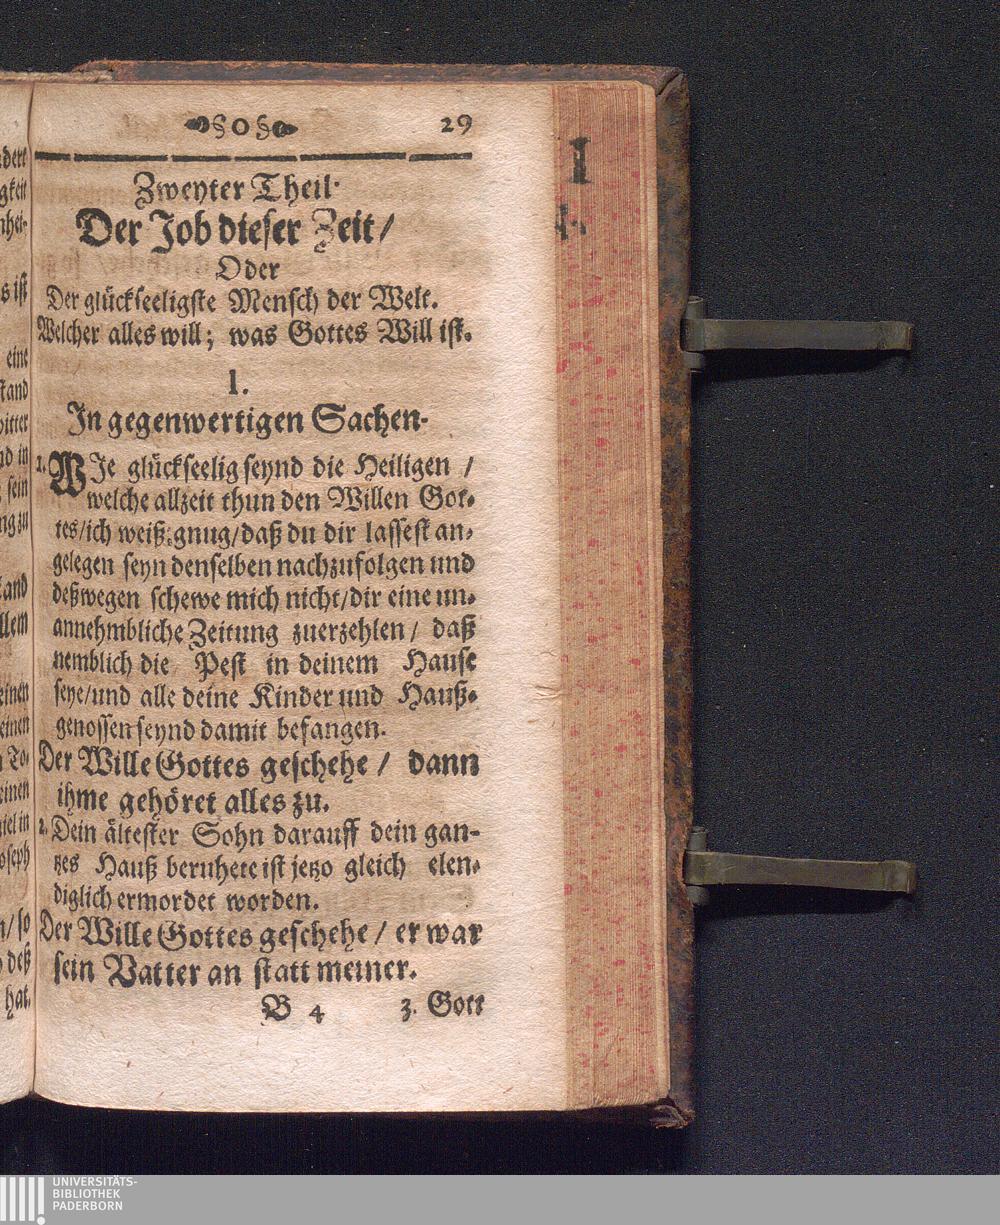 §0§ 29
Zweyter Theil.
Der Job dieser Zeit/
Oder
Der glückseeligste Mensch der Welt.
Welcher alles will; was Gottes Will ist.
I.
In gegenwertigen Sachen.
1. WJe glückseelig seynd die Heiligen /
welche allzeit thun den Willen Got-
tes/ich weiß gnug/daß du dir lassest an-
gelegen seyn denselben nachzufolgen und
deßwegen schewe mich nicht/dir eine un-
annehmbliche Zeitung zuerzehlen/ daß
nemblich die Pest in deinem Hause
seye/und alle deine Kinder und Hauß-
genossen seynd damit befangen.
Der Wille Gottes geschehe / dann
ihme gehöret alles zu.
2. Dein ältester Sohn darauff dein gan-
tzes Hauß beruhete ist jetzo gleich elen-
diglich ermordet worden.
Der Wille Gottes geschehe / er war
sein Vatter an statt meiner.
B 4 3. Gott
UNIVERSITÄTS-
BIBLIOTHEK
PADERBORN